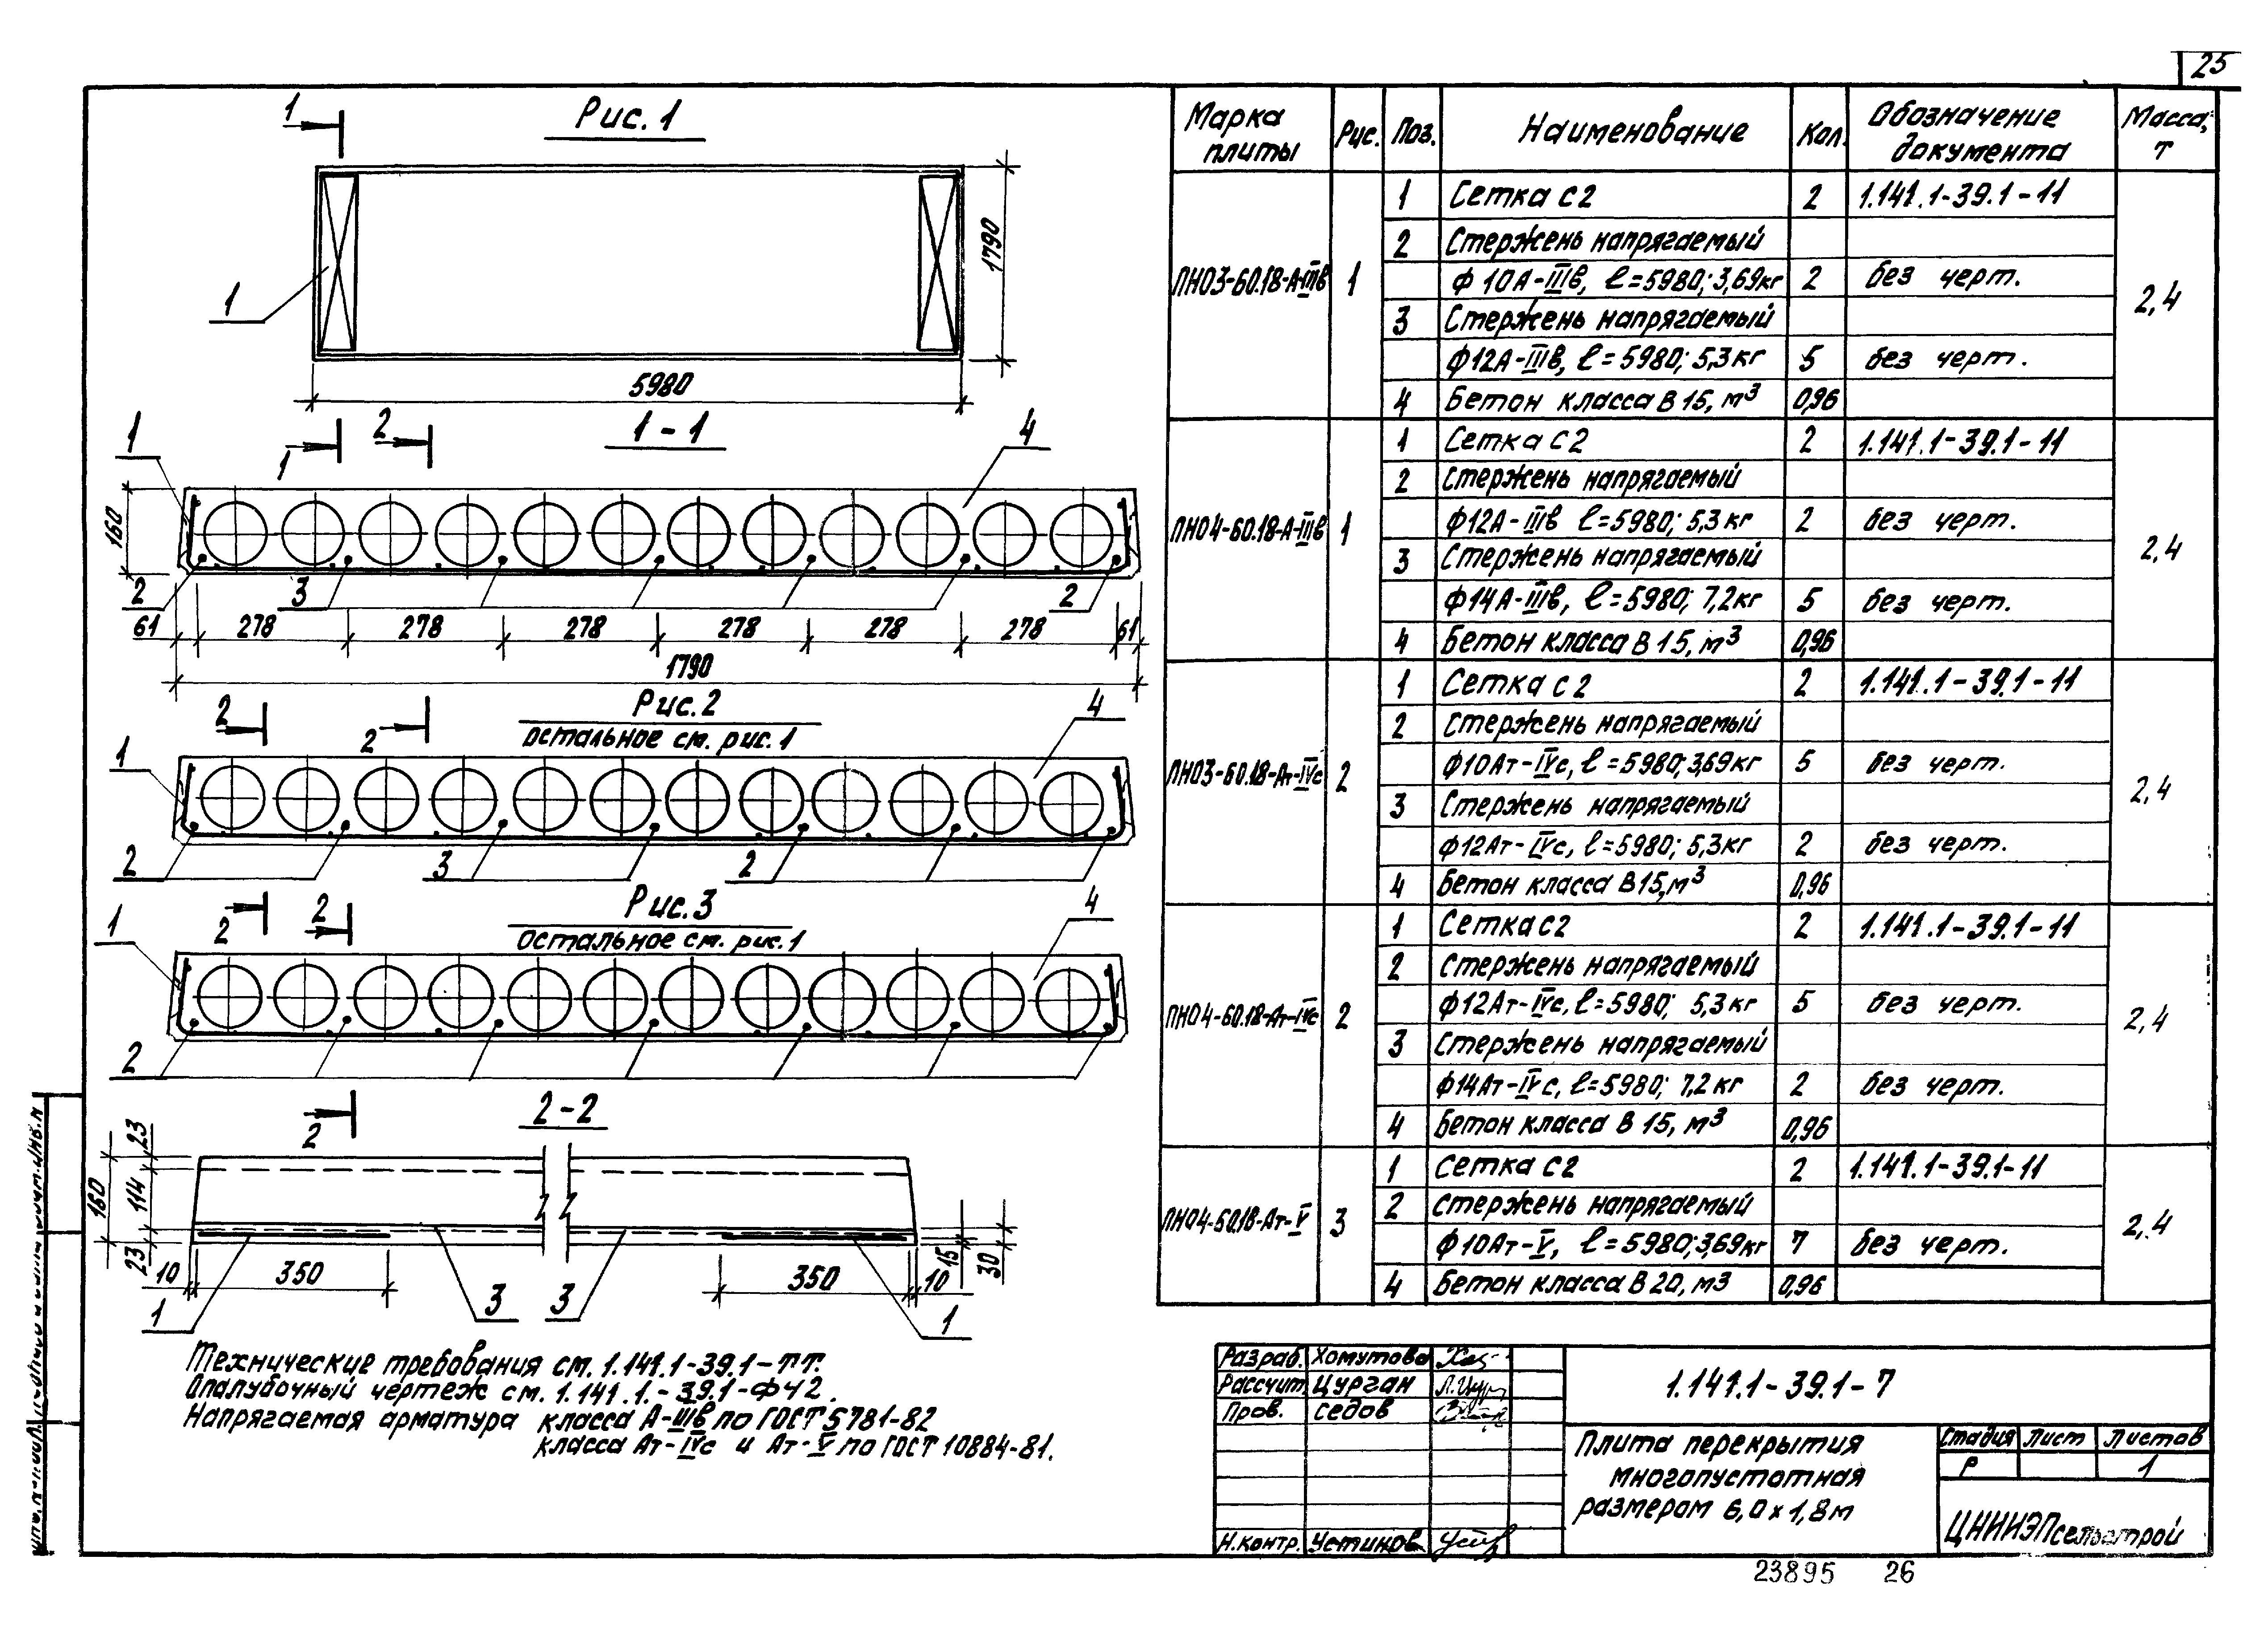 25
Рис. 1
1
1790
1
5980
1
2
1-1
1
4
160
2
3
2
61 278 278 278 278 278 278 61
1790
Рис. 2
Остальное см. рис. 1
2
2
1
4
2
3
2
Рис. 3
Остальное см. рис. 1
2
2
1
4
2
2
2-2
23
160
114
23
10 350 350 10
15
30
1
3
3
1
Технические требования см. 1.141.1-39.1-ТТ.
Опалубочный чертеж см. 1.141.1.-39.1-ФЧ2.
Напрягаемая арматура класса А-IIIв по ГОСТ 5781-82
класса Ат-IVс и Ат-V по ГОСТ 10884-81.
Марка плиты Рис. Поз. Наименование Кол. Обозначение документа Масса, т
ПНО3-60.18-А-IIIв 1 2,4
1 Сетка С2 2 1.141.1-39.1-11
2 Стержень напрягаемый
ф 10А-IIIв, ℓ=5980; 3,69кг 2 без черт.
3 Стержень напрягаемый
ф12А-IIIв, ℓ=5980; 5,3кг 5 без черт.
4 Бетон класса В 15, м³ 0,96
ПНО4-60.18-А-IIIв 1 2,4
1 Сетка С2 2 1.141.1-39.1-11
2 Стержень напрягаемый
ф12А-IIIв ℓ=5980; 5,3кг 2 без черт.
3 Стержень напрягаемый
ф14А-IIIв, ℓ=5980; 7,2кг 5 без черт.
4 Бетон класса В 15, м³ 0,96
ПНО3-60.18-Ат-IVс 2 2,4
1 Сетка С2 2 1.141.1-39.1-11
2 Стержень напрягаемый
ф10Ат-IVс, ℓ=5980; 3,69кг 5 без черт.
3 Стержень напрягаемый
ф12Ат-IVс, ℓ=5980; 5,3кг 2 без черт.
4 Бетон класса В15, м³ 0,96
ПНО4-60.18-Ат-IVс 2 2,4
1 Сетка С2 2 1.141.1-39.1-11
2 Стержень напрягаемый
ф12Ат-IVс, ℓ=5980; 5,3кг 5 без черт.
3 Стержень напрягаемый
ф14Ат-IVс, ℓ=5980; 7,2кг 2 без черт.
4 Бетон класса В 15, м³ 0,96
ПНО4-60.18-Ат-V 3 2,4
1 Сетка С2 2 1.141.1-39.1-11
2 Стержень напрягаемый
ф10Ат-V, ℓ=5980; 3,69кг 7 без черт.
4 Бетон класса В 20, м3 0,96
Разраб. Хомутова
Рассчит. Цурган
Пров. Седов
Н.контр. Устинов
1.141.1-39.1-7
Плита перекрытия
многопустотная
размером 6,0х1,8м
Стадия Лист Листов
Р 1
ЦНИИЭПсельстрой
23895 26